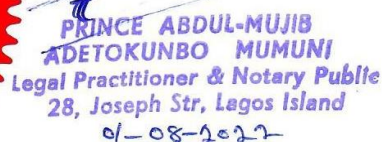 PRINCE ABDUL-MUJIB
ADETOKUNBO MUMUNI
Legal Practitioner & Notary Public
28, Joseph Str, Lagos Island
01-08-2022